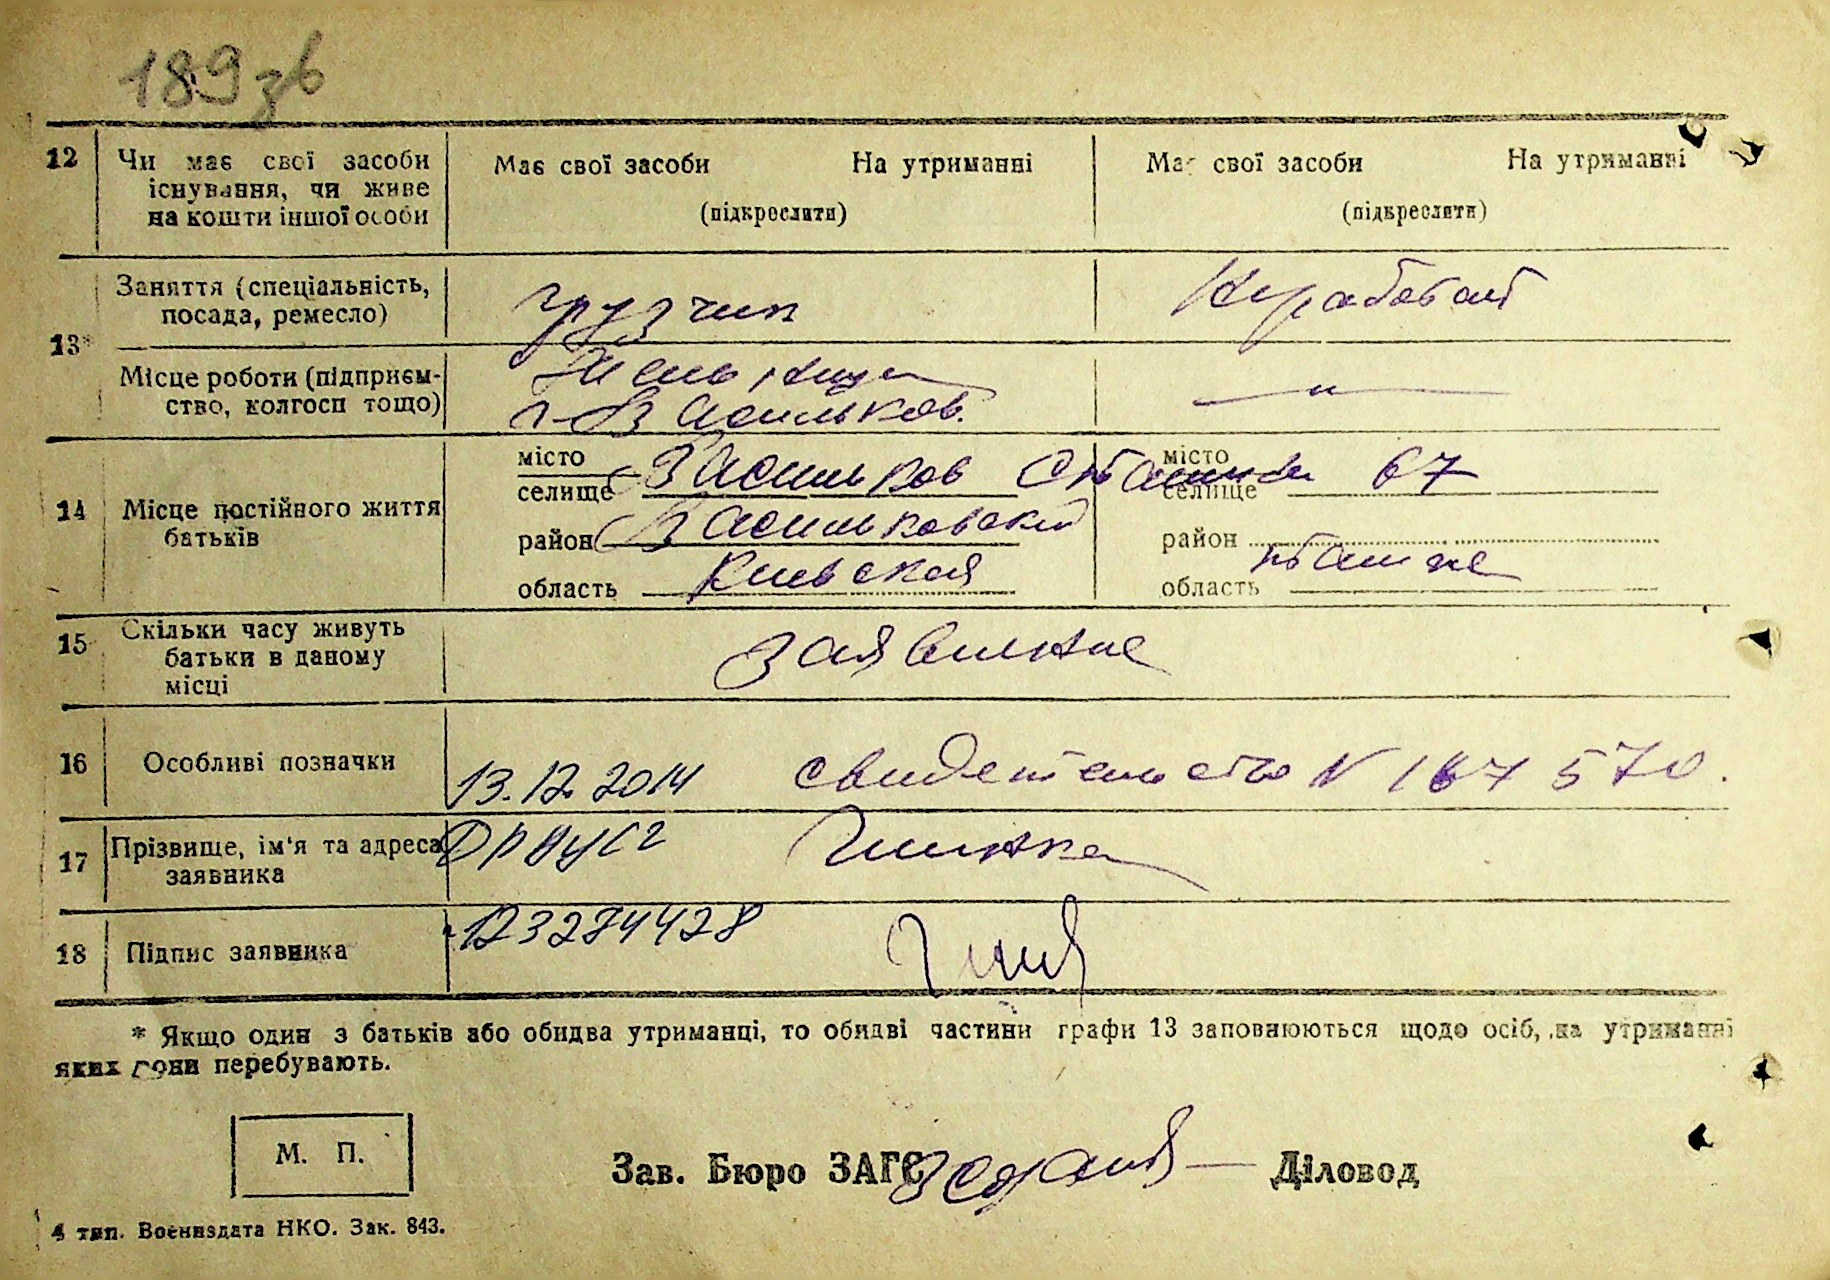 189 зв
12 Чи має свої засоби існування, чи живе на кошти іншої особи
Має свої засоби На утриманні
(підкреслити)
Має свої засоби На утриманні
(підкреслити)
13*
Заняття (спеціальність,
посада, ремесло)
грузчик
Не работает
Місце роботи (підприєм-
ство, колгосп тощо)
г. Васильков.
— " —
14 Місце постійного життя
батьків
місто
селище Васильков 67
район Васильковский
область Киевская
місто
селище
район
область
15 Скільки часу живуть
батьки в даному
місці
16 Особливі позначки
13.12.2014 свидетельство N 167 570.
17 Прізвище, ім'я та адреса
заявника
ДРАЦСГ
18 Підпис заявника
123284428
* Якщо один з батьків або обидва утриманці, то обидві частини графи 13 заповнюються щодо осіб, на утриманні
яких вони перебувають.
М. П.
Зав. Бюро ЗАГС Діловод
4 тип. Воениздата НКО. Зак. 843.